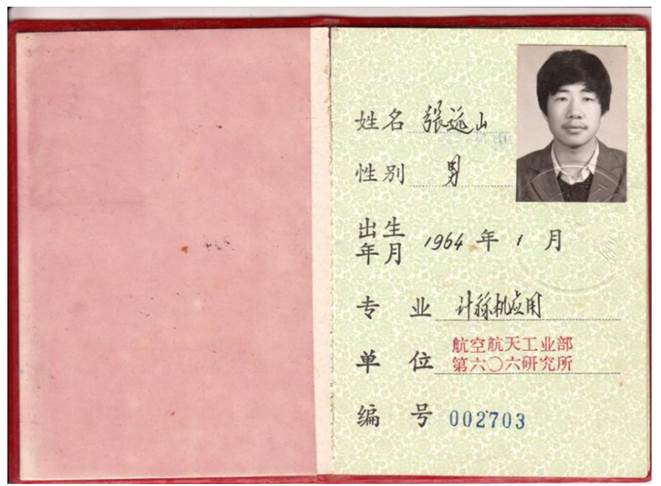 姓名 张远山
性别 男
出生年月 1964年1月
专业 计算机应用
单位 航空航天工业部
第六〇六研究所
编号 002703